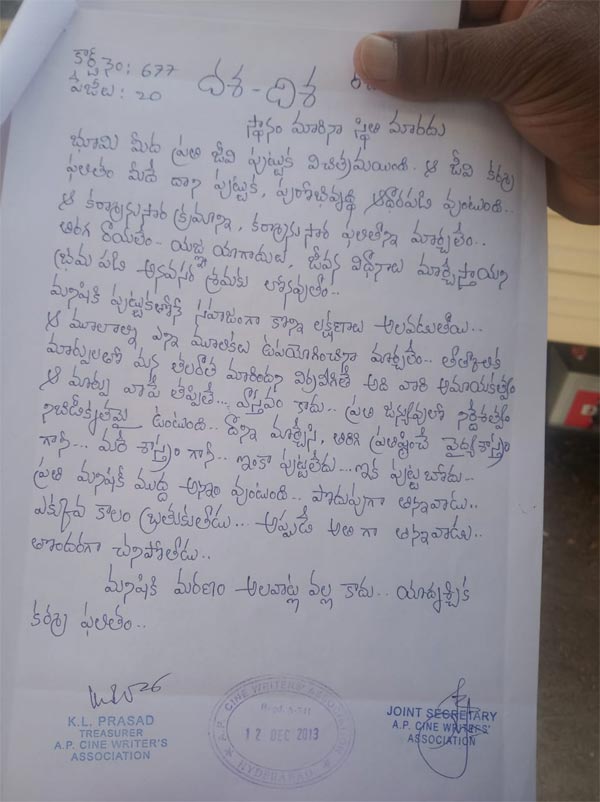 కార్డ్ నెం: 677
పేజీలు: 20
దశ - దిశ
స్థానం మారినా స్థితి మారదు
భూమి మీద ప్రతి జీవి పుట్టుక విచిత్రమయింది. ఆ జీవి కర్మ
ఫలితం మీదే దాని పుట్టుక, పురోభివృద్ధి ఆధారపడి వుంటుంది..
ఆ కర్మానుసార క్రమాన్ని, కర్మానుసార ఫలితాన్ని మార్చలేం..
తిరగ రాయలేం.. యజ్ఞ యాగాదులు, జీవన విధానాలు మార్చేస్తాయని
భ్రమ పడి అనవసర శ్రమకు లోనవుతాం..
మనిషికి పుట్టుకతోనే సహజంగా కొన్ని లక్షణాలు అలవడుతాయి..
ఆ మూలాల్ని ఎన్ని మూలికలు ఉపయోగించినా మార్చలేం.. తాత్కాలిక
మార్పులతో మన తలరాత మారిందని విర్రవీగితే అది వారి అమాయకత్వం
ఆ మార్పు వాపే తప్పితే... వాస్తవం కాదు.. ప్రతి జన్యువులో నిర్దేశత్వం
నిబిడీకృతమై ఉంటుంది.. దాన్ని మార్చేసి, తిరిగి ప్రతిష్టించే వైద్యశాస్త్రం
గానీ... మరే శాస్త్రం గానీ... ఇంకా పుట్టలేదు... ఇక పుట్ట బోదు..
ప్రతి మనిషికీ ముద్ద అన్నం వుంటుంది.. పొదుపుగా తిన్నవాడు..
ఎక్కువ కాలం బ్రతుకుతాడు... అప్పుడే అతిగా తిన్నవాడు..
తొందరగా చనిపోతాడు..
మనిషికి మరణం అలవాట్ల వల్ల కాదు.. యాదృచ్ఛిక
కర్మ ఫలితం..
K.L. PRASAD
TREASURER
A.P. CINE WRITER'S
ASSOCIATION
A.P. CINE WRITERS ASSOCIATION
Regd.
12 DEC 2013
HYDERABAD
JOINT SECRETARY
A.P. CINE WRITERS'
ASSOCIATION